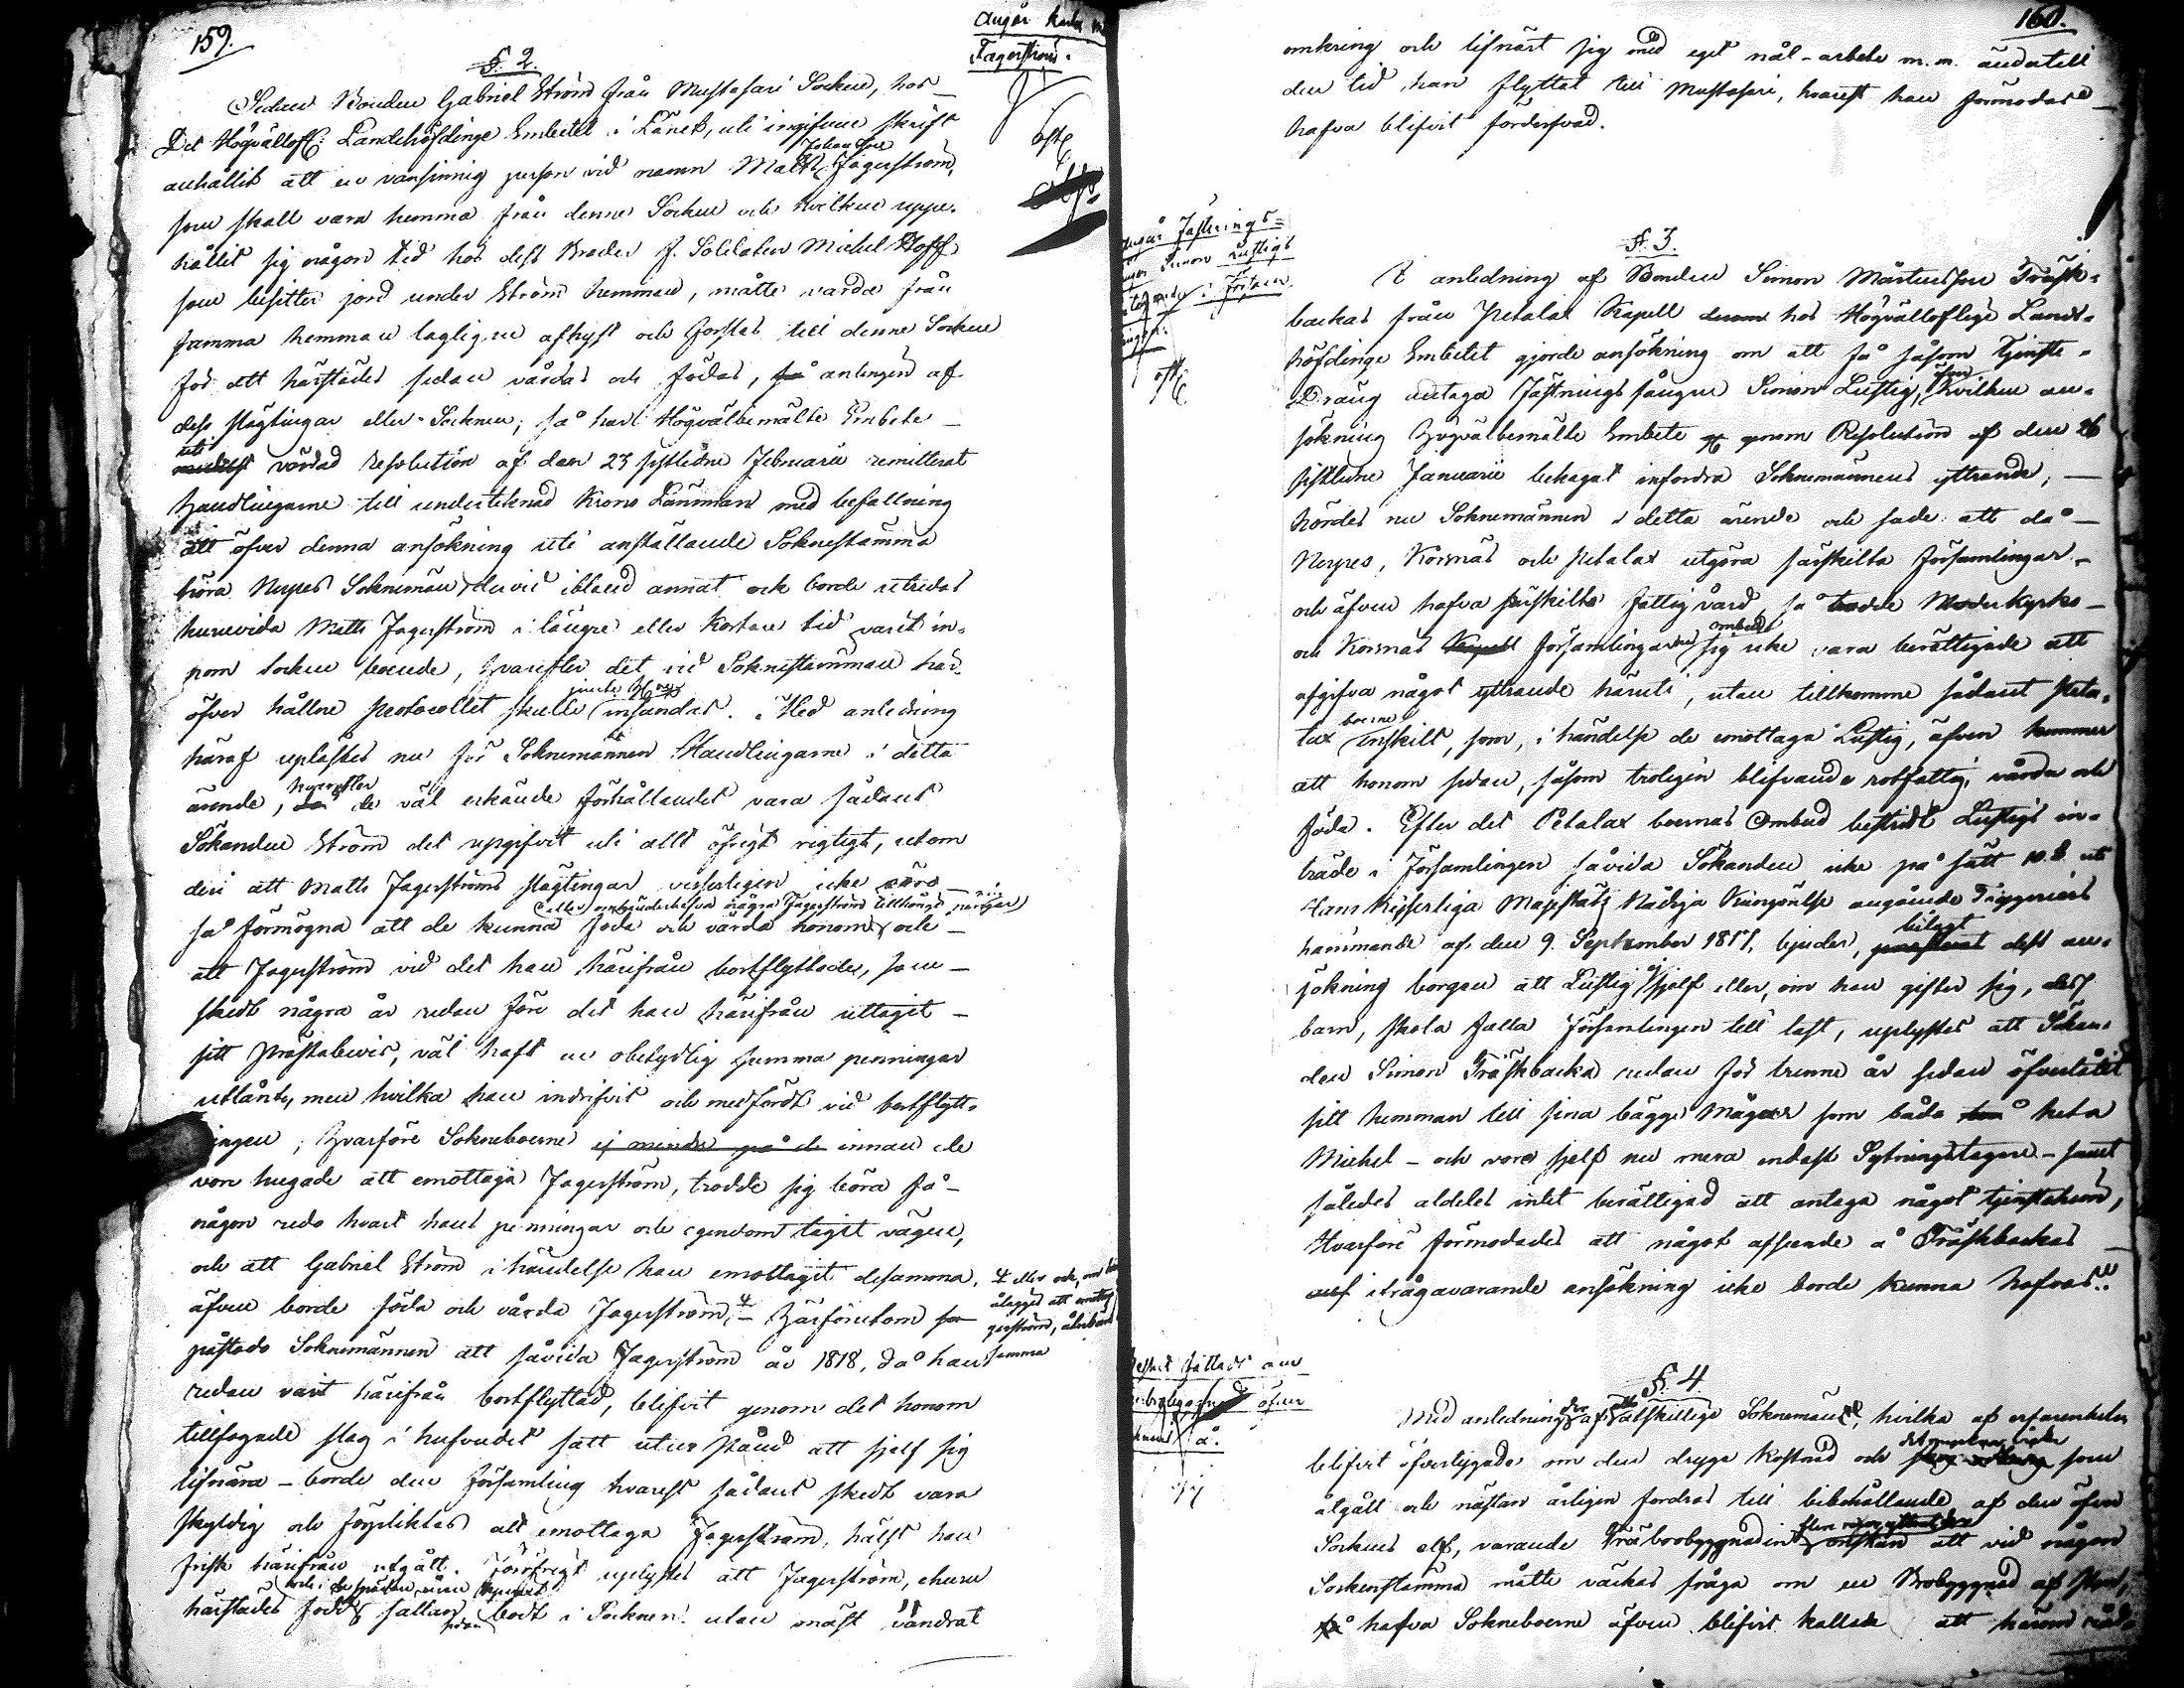 159.
Angår
Fagerström.
§. 2.
Sedan Bonden Gabriel Ström från Mustasari Socken, hos
Det Högvällofl: Landshöfdinge Embetet i Länet, uti ingifven skrift
Johansson
anhållit att en vansinnig person vid namn Matts Jagerström,
som skall vara hemma från denne Socken och hvilken uppe-
hållit sig någon tid hos dess Broder f. Soldaten Michel Hoff
som besitter jord under Ström hemman, måtte varda från
samma hemman lagligen afhyst och forslas till denne Socken
för att härstädes sedan vårdas och födas, få antingen af
dess slägtingar eller Socknen; så har Högvälbemälte Embete
uti
medelst vördad resolution af den 23 sistledne Februarii remitterat
Handlingarne till undertecknad Krono Länsman med befallning
att öfver denna ansökning uti anställande Soknestämma
höra Nerpes Soknemän, dervid ibland annat ock borde utredas
huruvida Matts Jagerström i längre eller kortare tid varit in-
nom socken boende, hvarefter det vid Soknestämman här-
öfver hållne protocollet skulle insändas. Med anledning
häraf uplästes nu för Soknemännen Handlingarne i detta
hvarefter
ärende, då de väl erkände förhållandet vara sådant
Sökanden Ström det uppgifvit uti allt öfrigt rigtigt, utom
deri att Matts Jagerströms slägtingar visserligen icke äro
eller om händer hafva några Jagerström tillhörige penningar
så förmögna att de kunna föda och vårda honom, och
att Jagerström vid det han härifrån bortflyttades, som
skedt några år redan före det han härifrån uttagit
sitt Prästabevis, väl haft en obetydlig summa penningar
utlånte, men hvilka han indrifvit och medfördt vid bortflytt-
ningen; hvarföre Sokneboerne ej mindre på de innan de
voro hugade att emottaga Jagerström, trodde sig böra få
någon reda hvart hans penningar och egendom tagit vägen,
och att Gabriel Ström i händelse han emottagit desamma,
äfven borde föda och vårda Jagerström, Härförutom
påstodo Soknemännen att såvida Jagerström år 1818, då han
redan varit härifrån bortflyttad, blifvit genom det honom
tillfogade slag i hufvudet satt utur stånd att sjelf sig
lifnära – borde den Församling hvarest sådant skedt vara
skyldig och förpliktas att emottaga Jagerström, hälst han
frisk härifrån utgått. Föröfrigt uplystes att Jagerström, ehuru
härstädes född, sällan bodt i Socknen utan mäst vandrat
eller ock, om
ålägges att emottag
gerström, återbära
samma
160.
omkring och lifnärt sig med eget nål-arbete m.m. ändatill
den tid han flyttat till Mustasari, hvarest han förmodas
hafva blifvit förderfvad.
angår Fästnings=
Simon Lustigs
§. 3.
I anledning af Bonden Simon Mårtensson Träsk-
backas från Petalax Kapell hos Högvälloflige Lands-
höfdinge Embetet gjorde ansökning om att få såsom tjenste-
Dräng antaga Fästningsfången Simon Lustig, öfver hvilken an-
sökning Högvälbemälte Embete genom Resolution af den 26
sistledne Januarii behagat infordra Soknemännens yttrande,
hördes nu Soknemännen i detta ärende och sade: att då
Nerpes, Korsnäs och Petalax utgöra särskilta Församlingar
och äfven hafva särskilta fattigvård, så trodde Moderkyrko-
ombud
och Korsnäs Kapell Församlingarnes sig icke vara berättigade att
afgifva något yttrande häruti, utan tillkomme sådant Peta-
boerne
lax enskilt, som, i händelse de emottaga Lustig, äfven kommer
att honom sedan, såsom troligen blifvande rotfattig, vårda och
föda. Efter det Petalax boernas Ombud bestridt Lustigs in-
träde i Församlingen såvida Sökanden icke på sätt 10. §. uti
Hans Kejserliga Majestäts Nådiga Kungörelse angående Tiggeriets
bilagt
hämmande af den 9. September 1817, bjuder, dess an-
sökning borgen att Lustig ej sjelf eller, om han gifter sig, dess
barn, skola falla Församlingen till last, uplystes att Sökan-
den Simon Träskbacka redan för trenne år sedan öfverlåtit
sitt hemman till sina bägge Mågar som båda heta
Michel – och vore sjelf nu mera endast Sytningstagare – samt
således aldeles intet berättigad att antaga något tjenstehion,
Hvarföre förmodades att något afseende å Träskbackas
ifrågavarande ansökning icke borde kunna hafvas.
§. 4.
Med anledning af åtskillige Soknemän, hvilka af erfarenheten
blifvit öfvertygade om den dryga kostnad och som
åtgått och nästan årligen fordras till bibehållande af den öfver
Sockens elf, varande Träbrobyggnaden önskan att vid någon
Sockenstämma måtte väckas fråga om en Brobyggnad af sten,
så hafva Sokneboerne äfven blifvit kallade att härom råd-